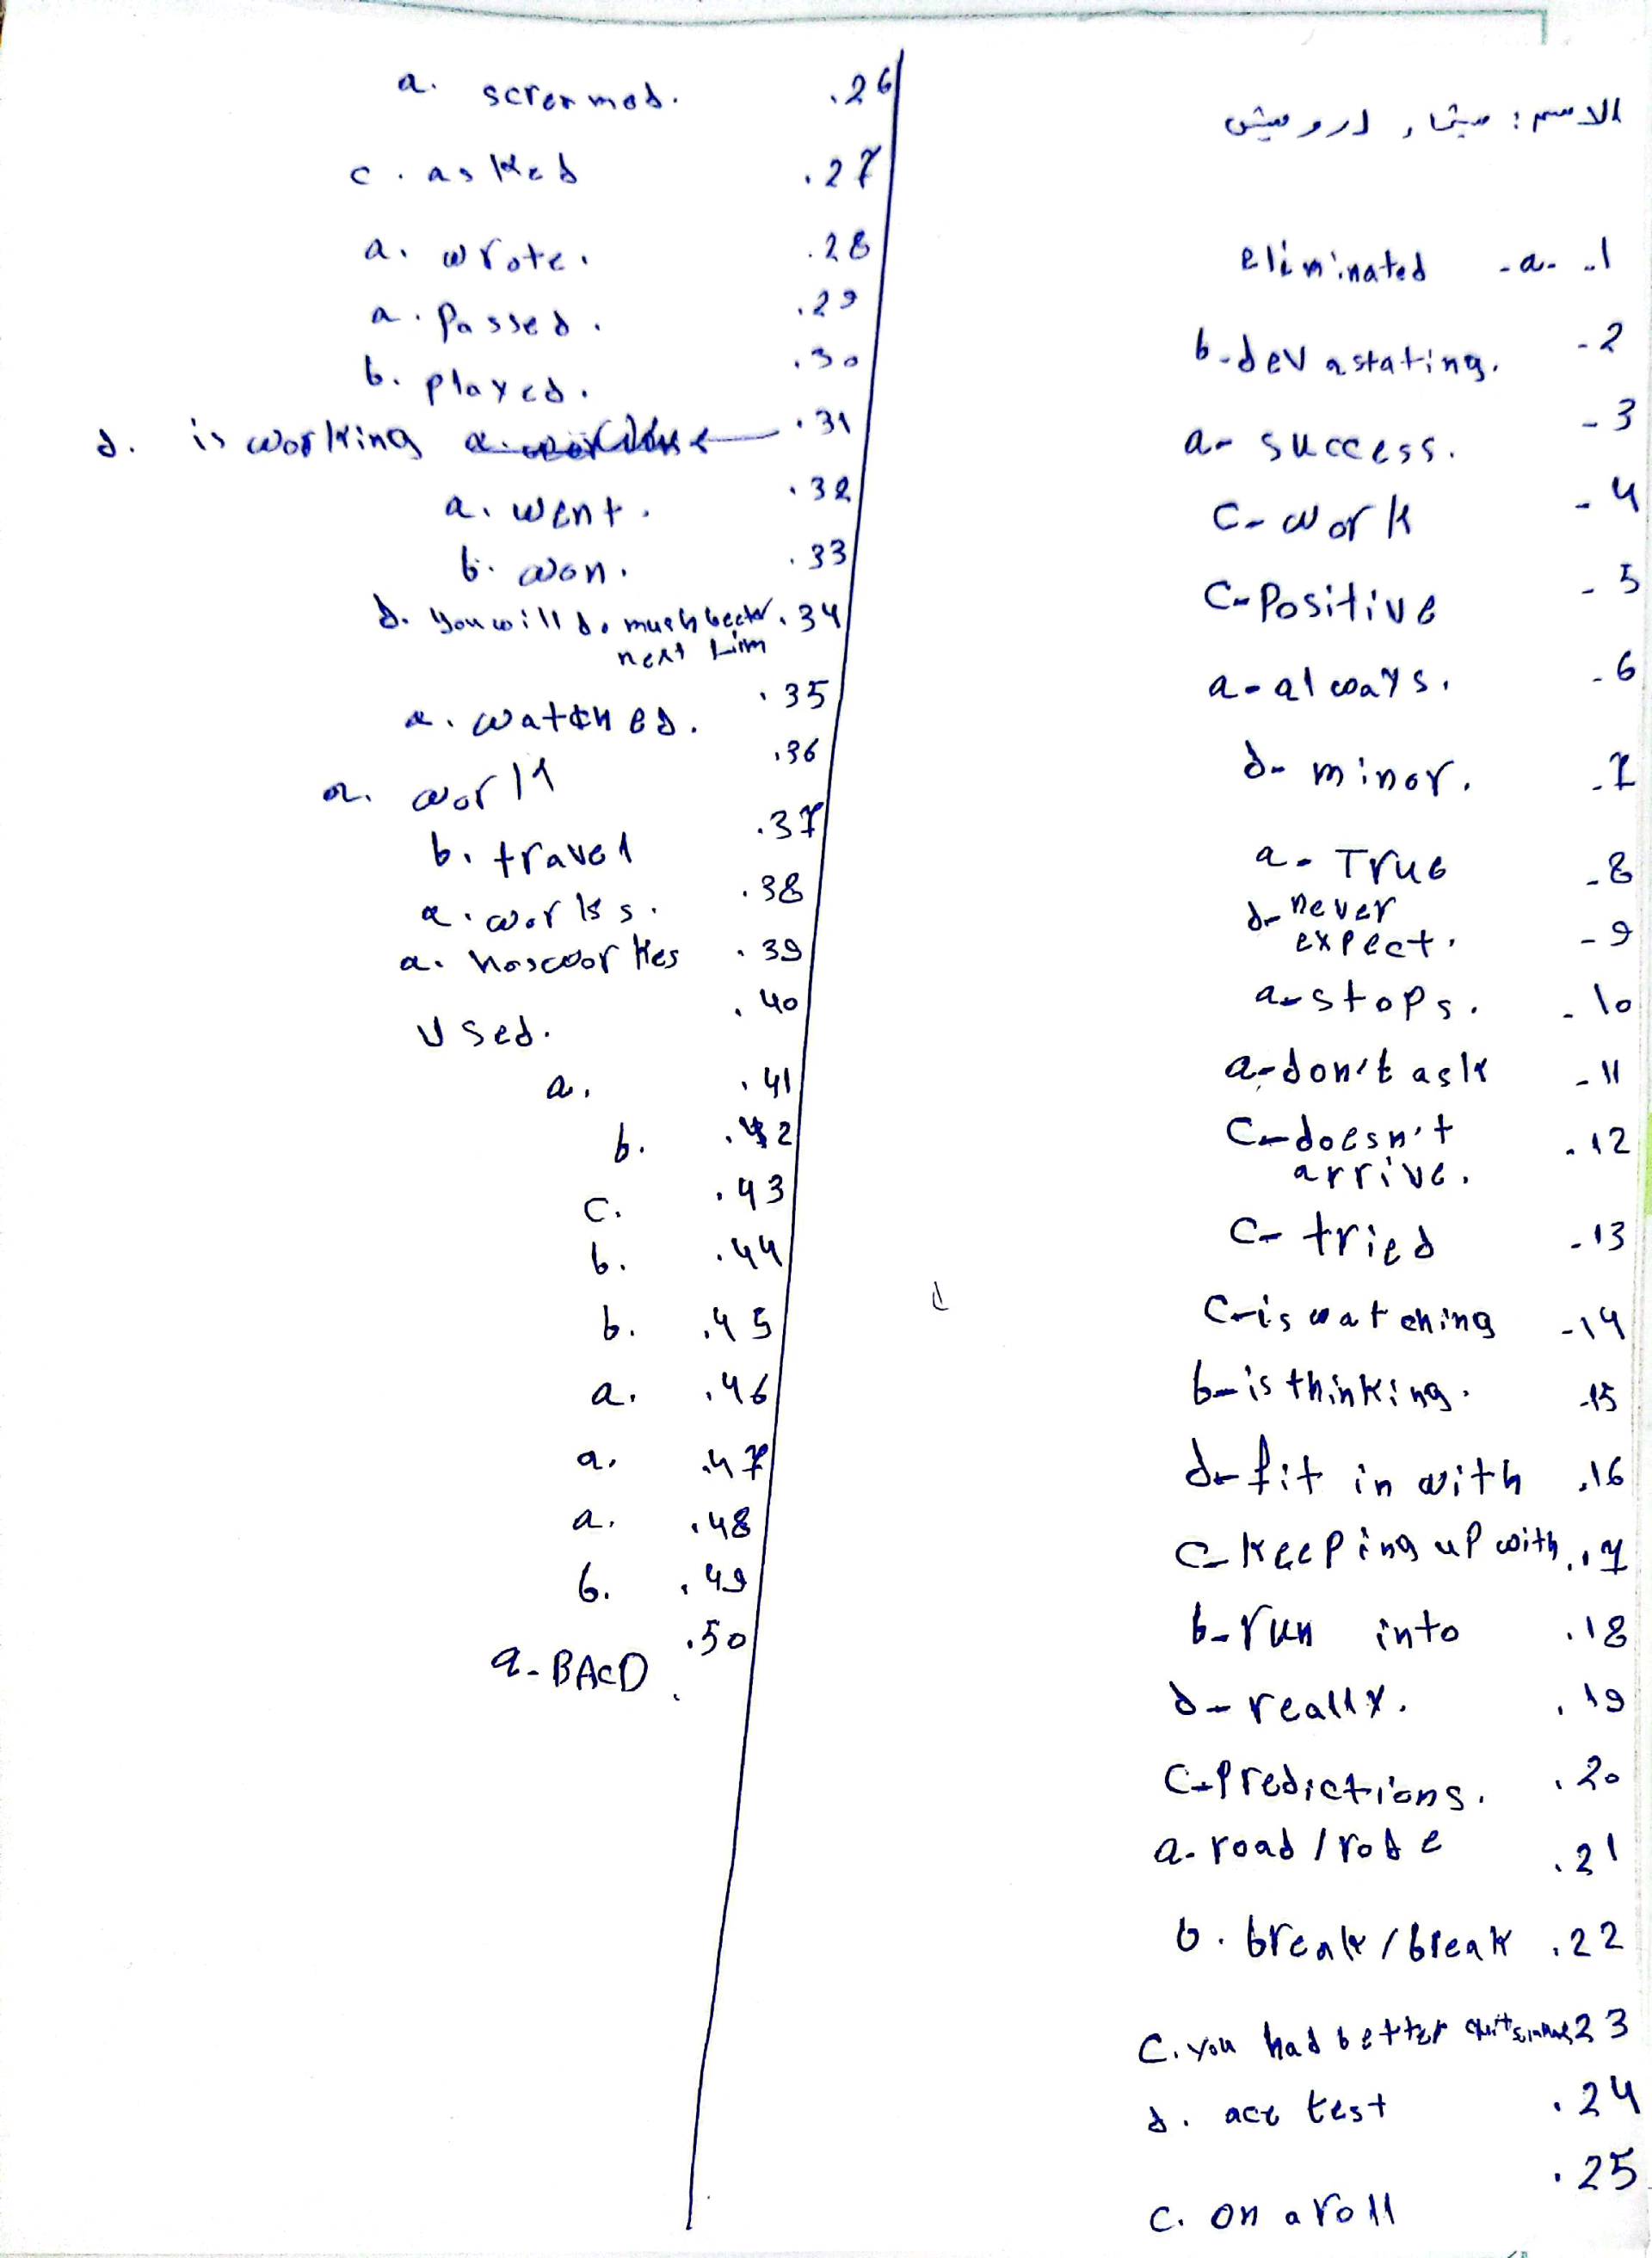 الاسم : ميثاء درويش
1.. -a- eliminated
2- b-devastating.
3- a- success.
4- C- work
5- C-Positive
6- a-always.
7- d- minor.
8- a- True
9- d- never
expect.
10- a-stops.
11- a-don't ask
12. C-doesn't
arrive.
13- C- tried
14- C-is watching
15- b-is thinking.
16. d-fit in with
17. C-keeping up with
18. b-run into
19. d-really.
20. C-Predictions.
21. a-road / rode
22. b. break / break
23 C. you had better quit
24. d. ace test
25.
C. on a roll
26. a.
27. c. asked
28. a. wrote.
29. a. Passed.
30. b. played.
31. d. is working
32. a. went.
33. b. won.
34. d. You will do much
next
35. a. watched.
36. a. work
37. b. travel
38. a. works.
39. a.
40. Used.
41. a.
42. b.
43. C.
44. b.
45. b.
46. a.
47. a.
48. a.
49. b.
50. a-BACD